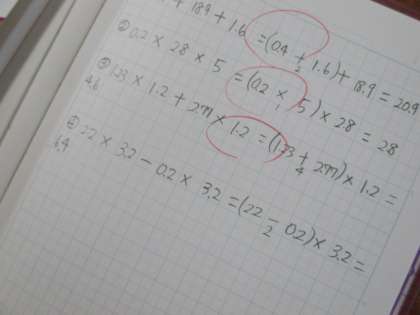 + 18.9 + 1.6 = (0.4 + 1.6) + 18.9 = 20.9
2
② 0.2 × 28 × 5 = (0.2 × 5) × 28 = 28
1
③ 1.23 × 1.2 + 2.77 × 1.2 = (1.23 + 2.77) × 1.2 =
4.8
4
④ 2.2 × 3.2 - 0.2 × 3.2 = (2.2 - 0.2) × 3.2 =
6.4
2